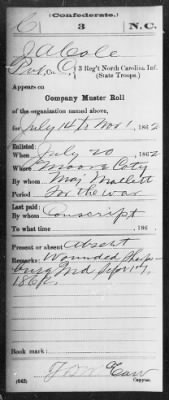 (Confederate.)
C 3 N.C.
J A Cole
Pvt, Co. C, 3 Reg't North Carolina Inf.
(State Troops.)
Appears on
Company Muster Roll
of the organization named above,
for July 14 to Nov 1, 1862
Enlisted:
When July 20, 1862
Where Moore Coty
By whom Maj Mallett
Period For the war
Last paid:
By whom Conscript
To what time , 186
Present or absent Absent
Remarks: Wounded Sharps-
burg Md Sept 17,
1862.
Book mark:
(642) Copyist.